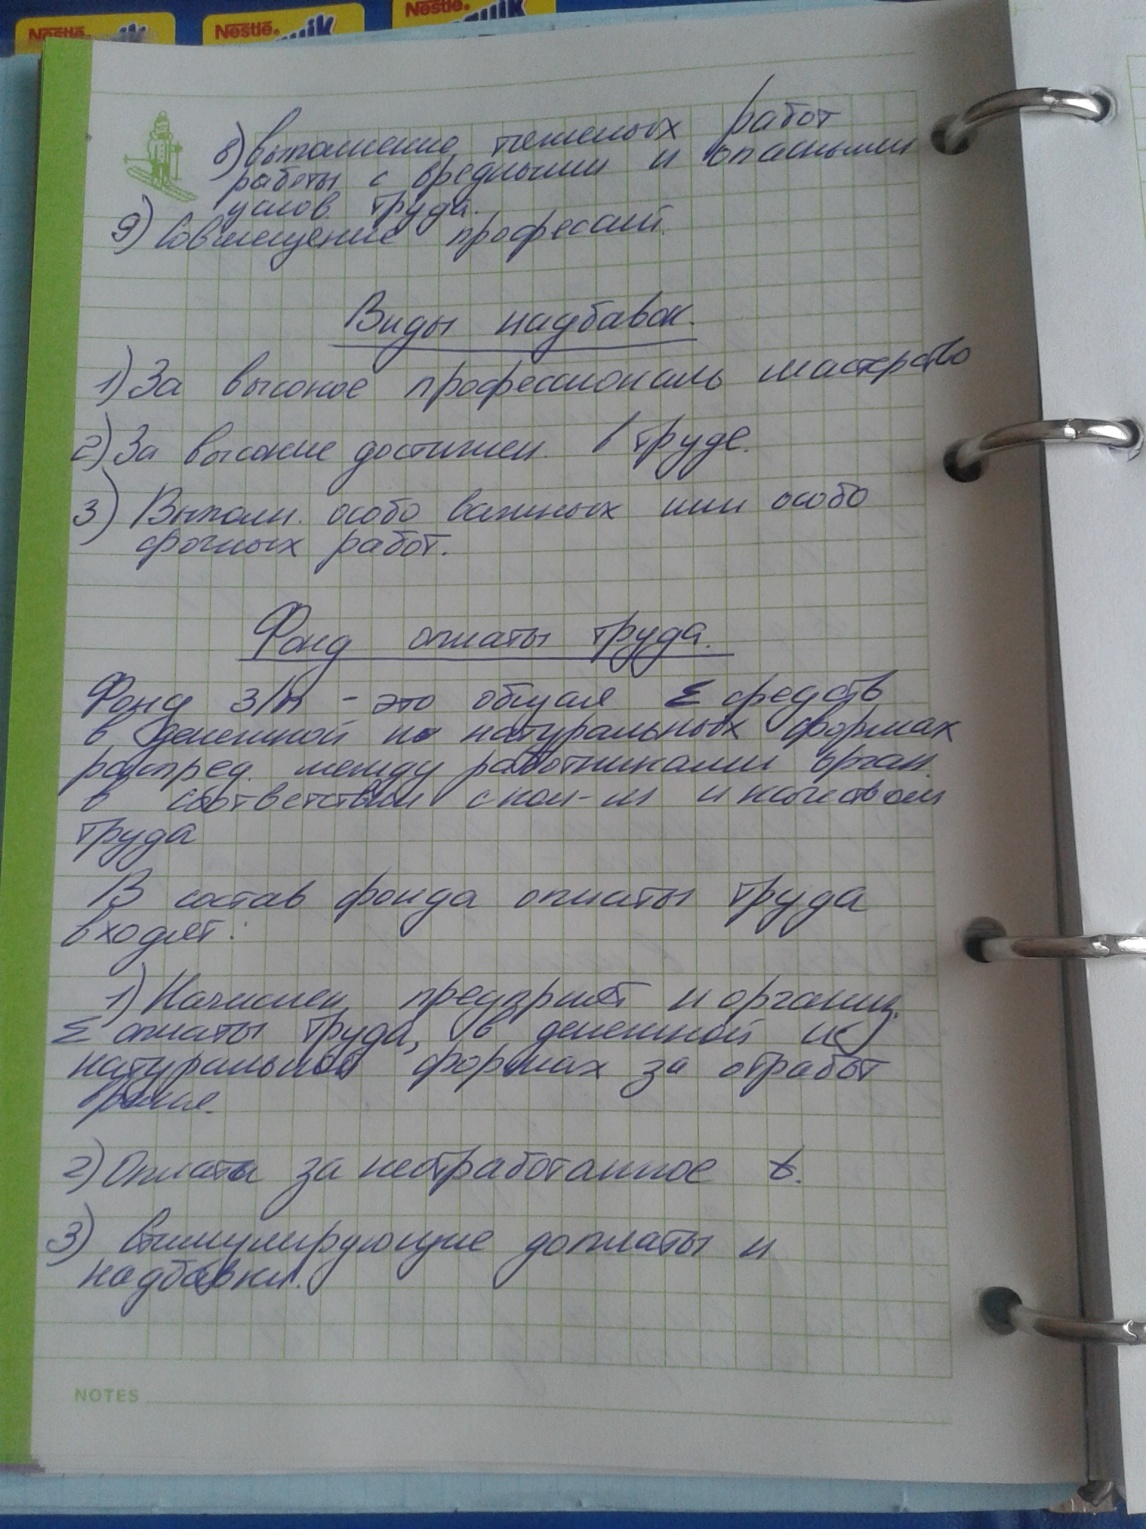 Nestlé
Nestlé
Nestlé
8) выполнение тяжелых работ
работы с вредными и опасными
услов. труда.
9) Совмещение профессий.
Виды надбавок.
1) За высокое профессиональ мастерство
2) За высокие достижен. в труде.
3) Выполн. особо важных или особо
срочных работ.
Фонд оплаты труда.
Фонд з/п - это общая Σ средств
в денежной и натуральных формах
распред. между работниками орган.
в соответствии с кол-м и качеством
труда
В состав фонда оплаты труда
входят:
1) Начислен. предприят и организ.
Σ оплаты труда, в денежной и
натуральной формах за отработ
время.
2) Оплаты за неотработанное t.
3) Стимулирующие доплаты и
надбавки.
NOTES